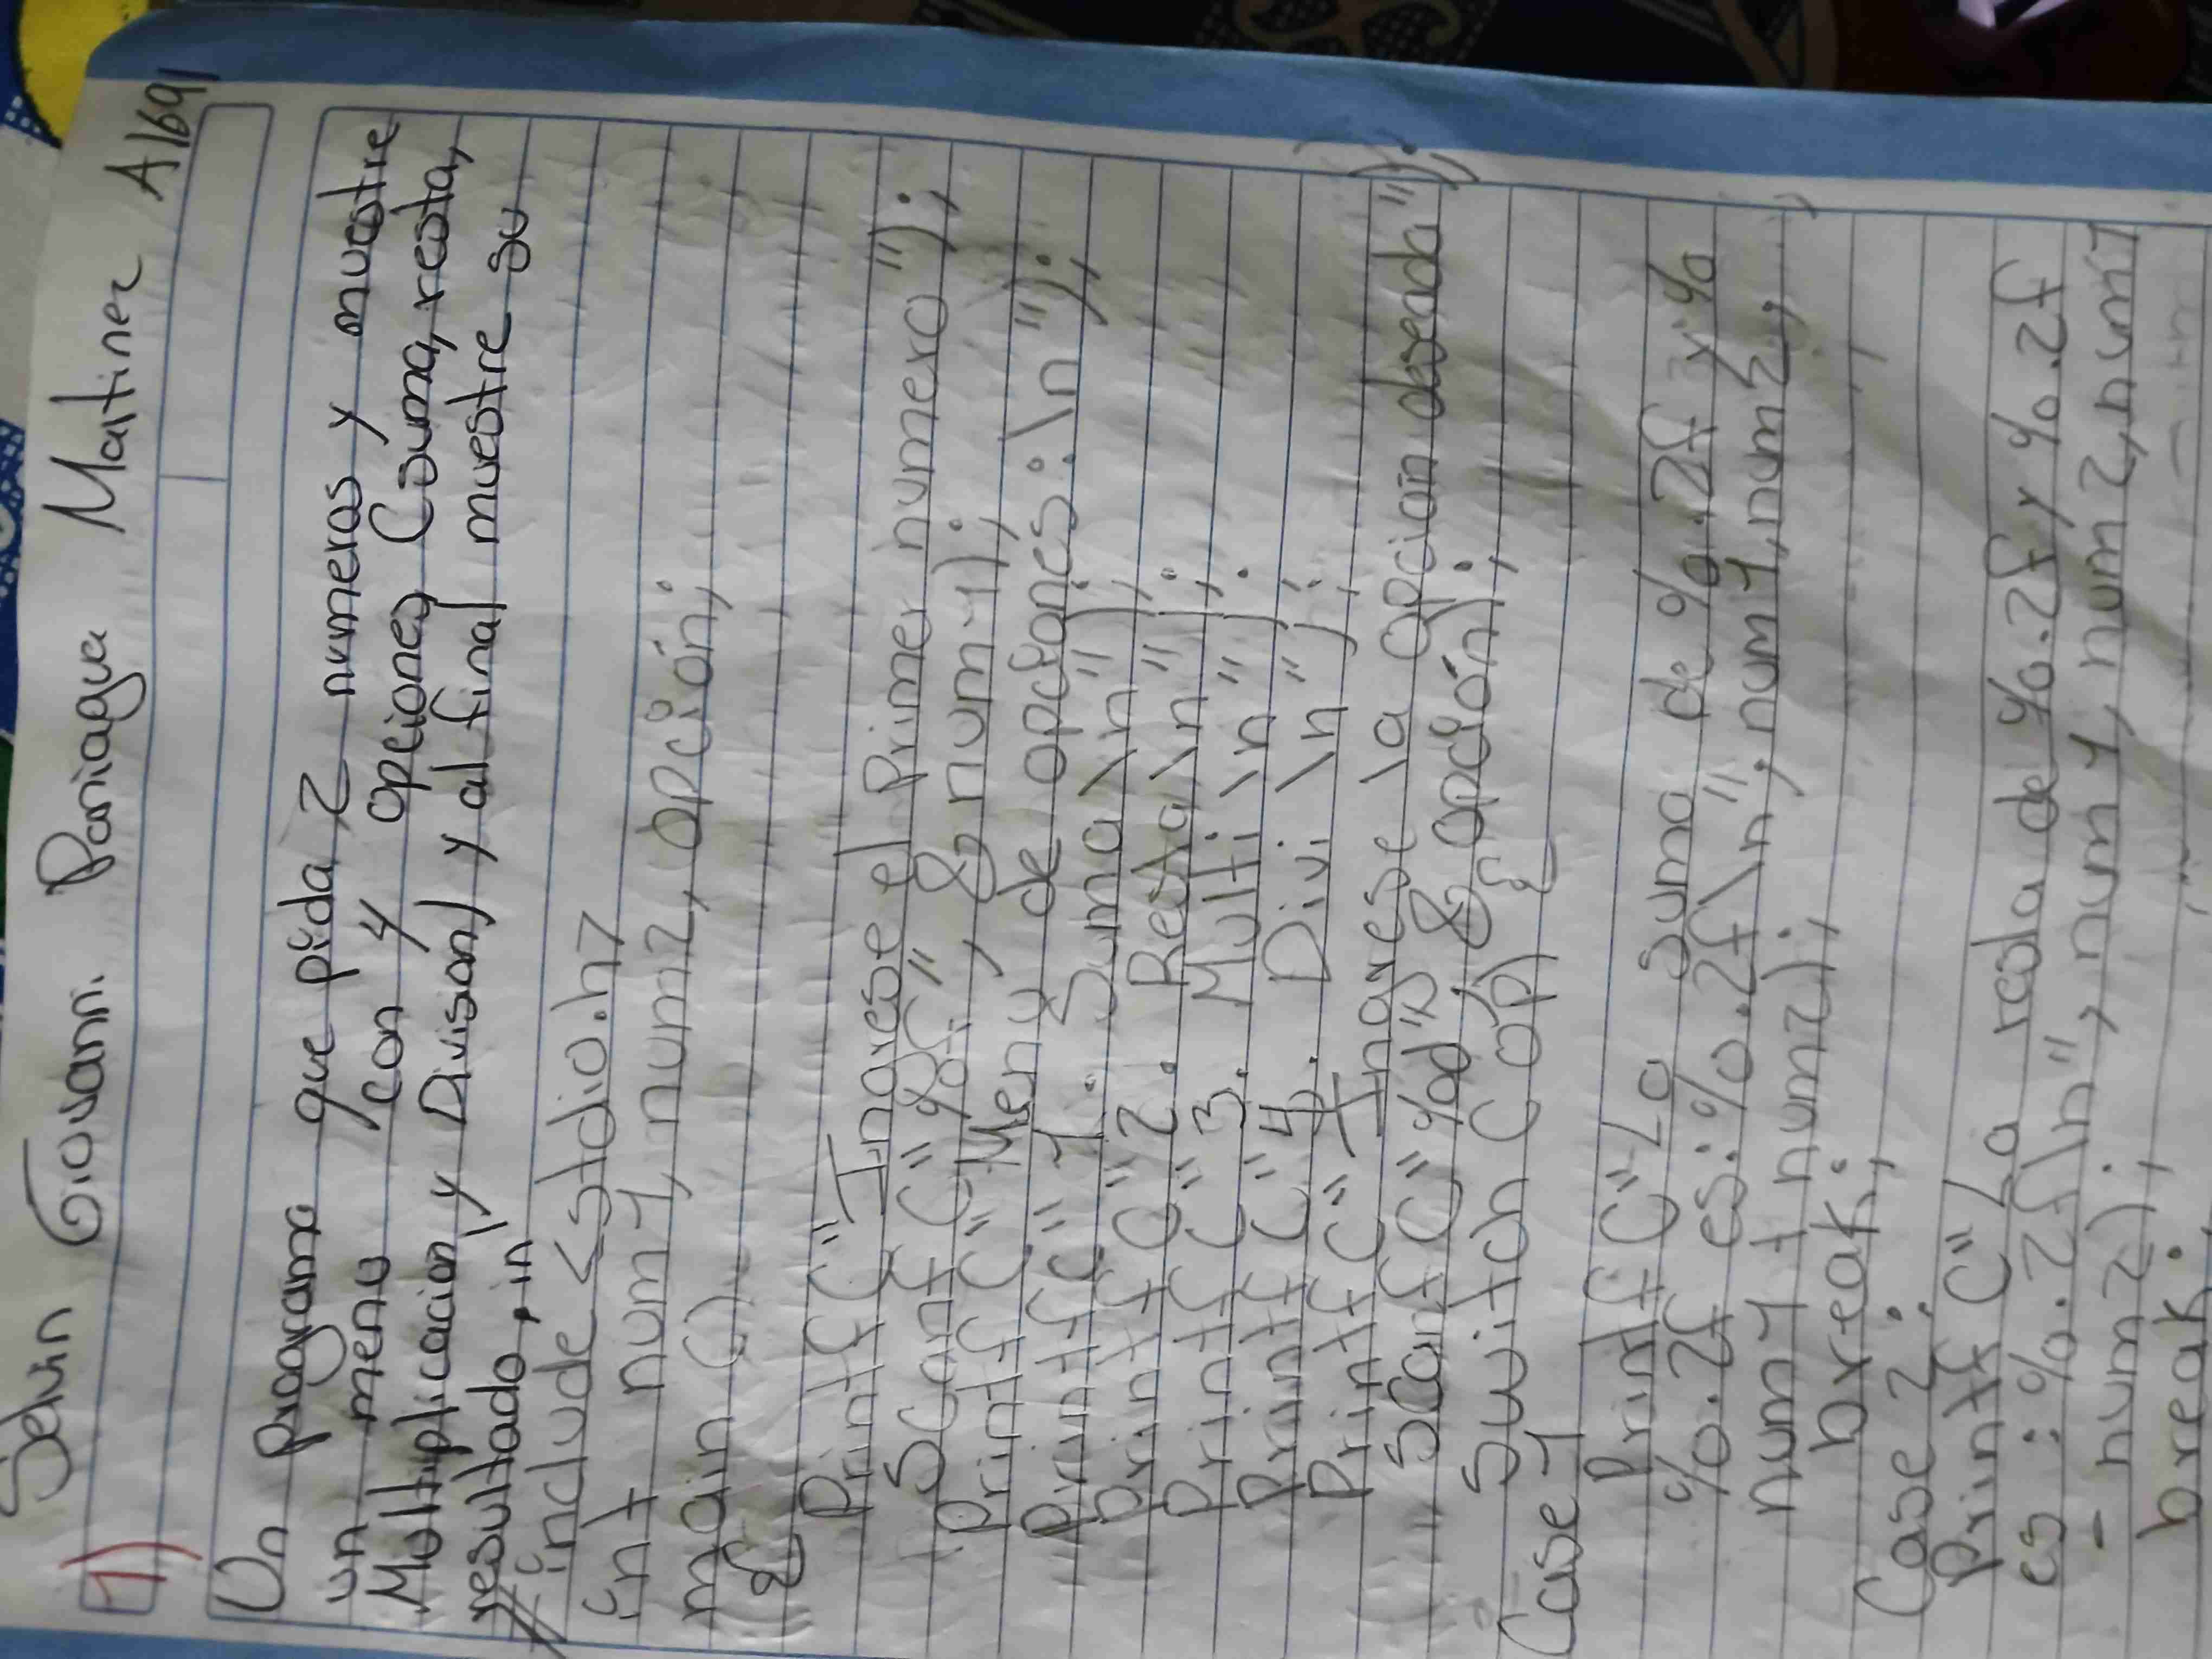 Selvin Giovanni Paniagua Martinez A1691
1)
Un programa que pida 2 numeros y muestre
un menu con 4 opciones (suma, resta,
Multiplicacion y Division) y al final muestre su
resultado.
#include <stdio.h>
int num1, num2, opción;
main ()
{
Printf ("Ingrese el Primer numero");
Scanf ("%f", &num1);
printf ("Menu de opciones:\n");
Printf ("1. Suma\n");
Printf ("2. Resta\n");
Printf ("3. Multi\n");
Printf ("4. Divi\n");
Printf ("Ingrese la opcion deseada");
Scanf ("%d", &opción);
Switch (op) {
Case 1
Printf ("La suma de %.2f y %
%.2f es: %.2f\n", num1, num2,
num1 + num2);
break;
Case 2:
Printf ("La resta de %.2f y %.2f
es: %.2f\n", num1, num2, num1
- num2);
break;